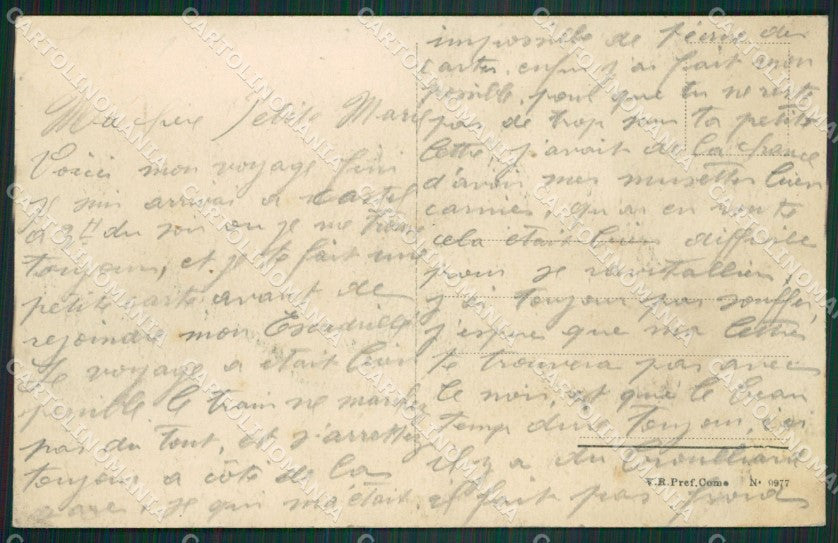 Ma chère Petite Marie
Voici mon voyage fini
je sui arrivai a Castel
a 3H du soir ou je me trouve
toujour, et je te fait une
petite carte avant de
rejoindre mon Escadrille
Le voyage a était bien
penible le train ne marchez
pas du tout, et s'arrettez
toujour a côté de la
gare, ce qui m'a était
impossible de t'écrire des
cartes, enfin j'ai fait mon
possible, pour que tu ne reste
pas de trop sans ta petite
lettre, j'avait de la chance
d'avoir mes musettes bien
garnies, qu'ar en route
cela était bien difficile
pour se ravitallier,
j'ai toujour pas souffer,
j'espere que ma lettre
te trouvera pas avec
le noir, et que le beau
temp dure toujour, ici
il y a du brouillard
il fait pas froid
V.R.Pref.Como N• 9977
CARTOLINOMANIA